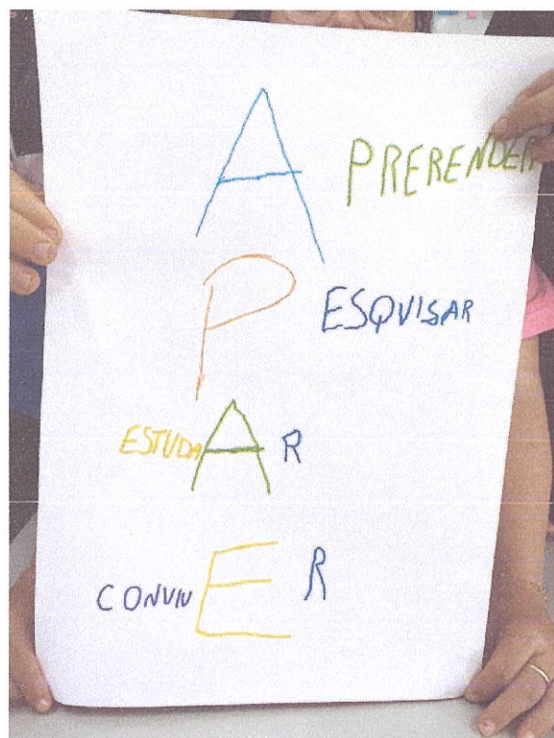 A PRERENDER
P ESQUISAR
ESTUDA A R
CONVIV E R